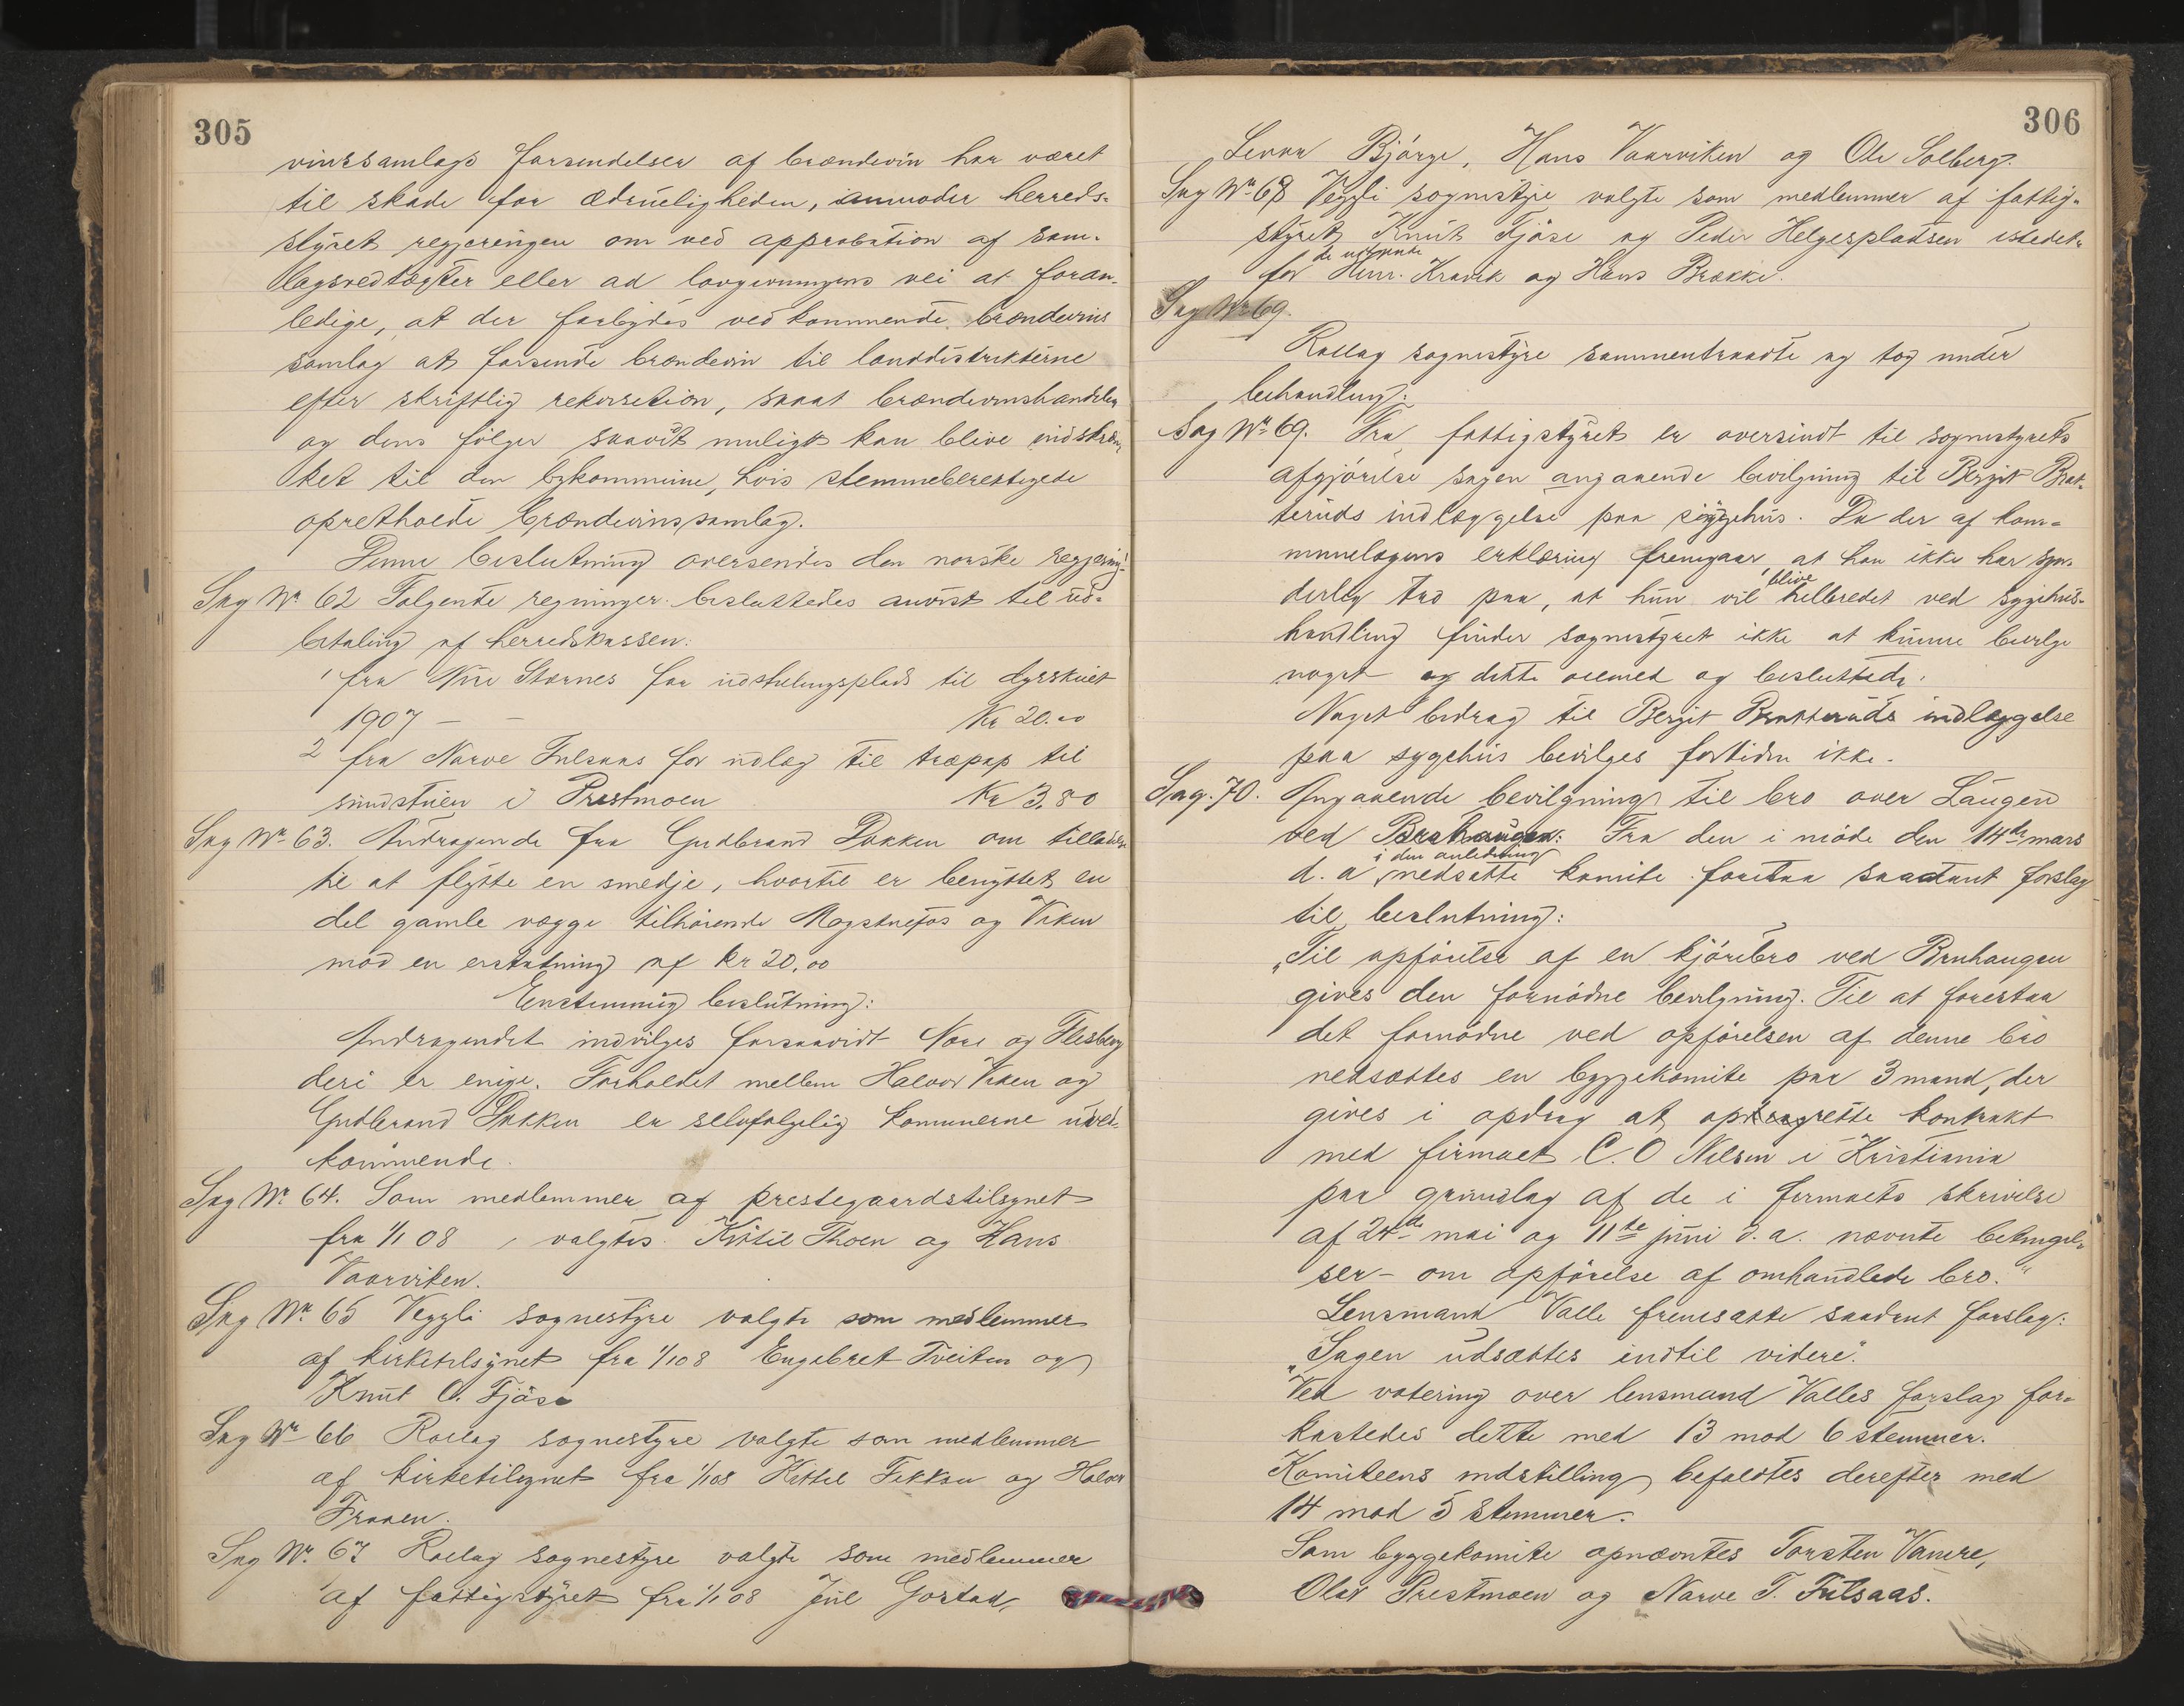 305
vinssamlags forsendelser af brændevin har været
til skade for ædrueligheden, anmoder herreds-
styret regjeringen om ved approbation af sam-
lagsvedtægter eller ad lovgivningens vei at foran-
ledige, at der forbydes vedkommende brændevins
samlag at forsende brændevin til landdistrikterne
efter skriftlig rekvisition, saaat brændevinshandelen
og dens følger saavidt muligt kan blive indskræn-
ket til den bykommune, hvis stemmeberettigede
opretholdt brændevinssamlag.
Denne beslutning oversendes den norske regjering.
Sag Nr 62 Følgende regninger besluttedes anvist til ud-
betaling af herredskassen:
1 fra Nire Stærnes for udstillingsplads til dyrskuet
1907 — — Kr 20.00
2 fra Narve Fulsaas for udlæg til træpap til
smidstuen i Prestmoen Kr 3,80
Sag Nr 63. Andragende fra Gudbrand Dokken om tilladelse
til at flytte en smedje, hvortil er benyttet en
del gamle vægge tilhørende Mogstufos og Viken
mod en erstatning af kr 20,00
Enstemmig beslutning:
Andragendet indvilges forsaavidt Nore og Flesberg
deri er enige. Forholdet mellem Halvor Viken og
Gudbrand Dokken er selvfølgelig kommunerne uved-
kommende.
Sag Nr 64. Som medlemmer af prestegaardstilsynet
fra 1/1 08 valgtes Kittil Thoen og Hans
Vaarviken.
Sag Nr 65 Veggli sognestyre valgte som medlemmer
af kirketilsynet fra 1/1 08 Engebret Tveiten og
Knut O. Fjøse
Sag Nr 66 Rollag sognestyre valgte som medlemmer
af kirketilsynet fra 1/1 08 Kittil Fekkan og Halvor
Fraaen.
Sag Nr. 67 Rollag sognestyre valgte som medlemmer
af fattigstyret fra 1/1 08 Juel Gorstad,
306
Levor Bjørge, Hans Vaarviken og Ole Solberg.
Sag Nr 68 Veggli sognestyre valgte som medlemmer af fattig-
styret Knut Fjøse og Peder Helgesplatsen istedet-
de udtrædende
for Henr. Kravik og Hans Brække.
Sag Nr 69.
Rollag sognestyre sammentraadte og tog under
behandling:
Sag Nr 69. Fra fattigstyret er oversendt til sognestyrets
afgjørelse sagen angaaende bevilgning til Bergit Brat-
teruds indlæggelse paa sygehus. Da der af kom-
munelægens erklæring fremgaar, at han ikke har syn-
blive
derlig tro paa, at hun vil helbredet ved sygehus-
handling finder sognestyret ikke at kunne bevilge
noget og dette øiemed og besluttede:
Noget bidrag til Bergit Bratteruds indlæggelse
paa sygehus bevilges fortiden ikke.
Sag. 70. Angaaende bevilgning til bro over Laugen
ved Bruhaugen: Fra den i møde den 14de mars
i den anledning
d. a nedsatte komite foretaa saadant forslag
til beslutning:
„Til opførelse af en kjørebro ved Bruhaugen
gives den fornødne bevilgning. Til at forestaa
det fornødne ved opførelsen af denne bro
nedsættes en byggekomite paa 3 mand, der
gives i opdrag at oprette kontrakt
med firmaet C. O Nilsen i Kristiania
paa grundlag af de i firmaets skrivelse
af 24de mai og 11te juni d. a. nævnte betingel-
ser - om opførelse af omhandlede bro."
Lensmand Valle fremsatte saadant forslag:
„Sagen udsættes indtil videre".
Ved votering over lensmand Valles forslag for-
kastedes dette med 13 mod 6 stemmer.
Komiteens indstilling befaldtes derefter med
14 mod 5 stemmer.
Som byggekomite opnævntes Torsten Vamre,
Olav Prestmoen og Narve T. Fulsaas.